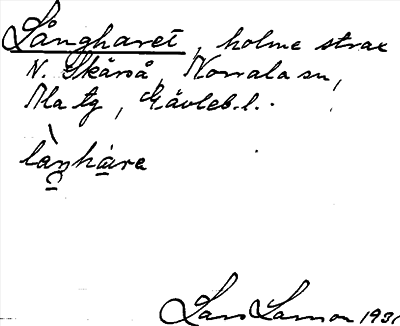 Långharet, holme strax
N. Skärså, Norrala sn,
Ala tg, Gävleb.l.
làŋhàre
Lars Larsson 193